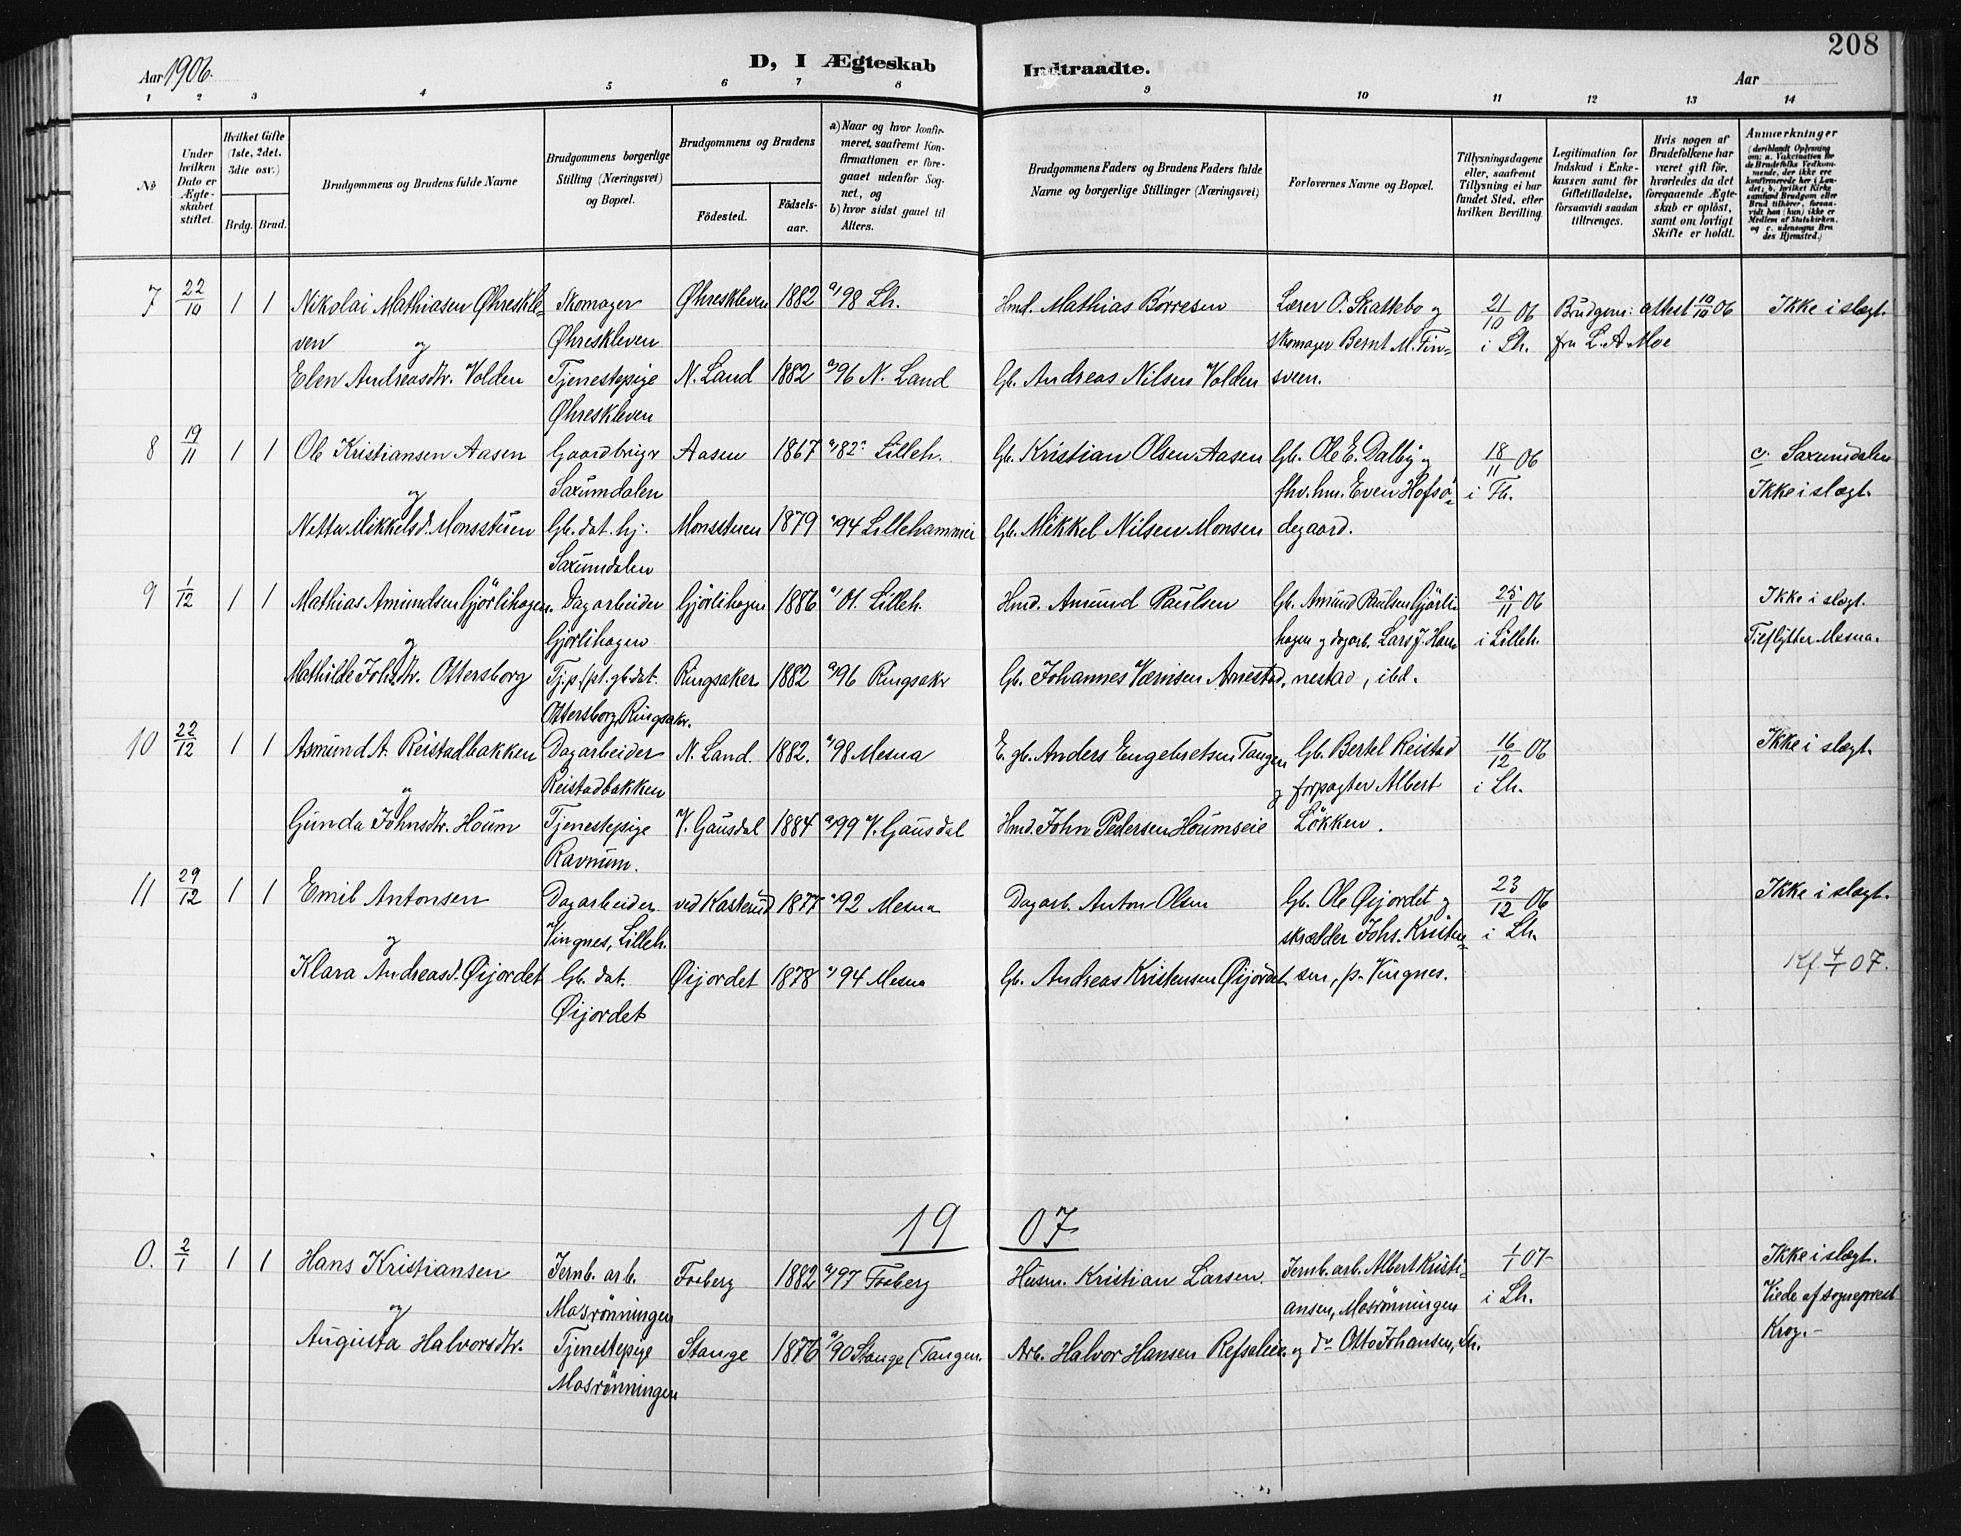 208
Aar 1906.
D, I Ægteskab Indtraadte.
Aar
1 2 3 4 5 6 7 8 9 10 11 12 13 14
No
Under hvilken Dato er Ægteskabet stiftet.
Hvilket Gifte (1ste, 2det, 3die osv.)
Brdg. Brud.
Brudgommens og Brudens fulde Navne
Brudgommens borgerlige Stilling (Næringsvei) og Bopæl.
Brudgommens og Brudens
Födested.
Födsels-aar.
a) Naar og hvor konfirmeret, saafremt Konfirmationen er foregaaet udenfor Sognet, og
b) hvor sidst gaaet til Alters.
Brudgommens Faders og Brudens Faders fulde Navne og borgerlige Stillinger (Næringsvei)
Forlovernes Navne og Bopæl.
Tillysningsdagene eller, saafremt Tillysning ei har fundet Sted, efter hvilken Bevilling.
Legitimation for Indskud i Enkekassen samt for Giftetilladelse, forsaavidt saadan tiltrænges.
Hvis nogen af Brudefolkene har været gift för, hvorledes da det foregaaende Ægteskab er oplöst, samt om lovligt Skifte er holdt.
Anmærkninger (deriblandt Oplysning om: a. Vaccination for de Brudefolks Vedkommende, der ikke ere konfirmerede her i Landet; b. hvilket Kirkesamfund Brudgom eller Brud tilhører, forsaavidt han (hun) ikke er Medlem af Statskirken, og c. udensogns Brudes Hjemsted.)
7 22/10 1 1 Nikolai Mathiasen Øhreskle- Skomager Øhreskleven 1882 a/98 Lh. Hmd. Mathias Börresen Lærer O. Skattebo og 21/10 06 Brudgom: attest 10/10 06 Ikke i slægt.
ven og Øhreskleven skomager Bernt M. Fin- i Lh. fra L. A. Moe
Elen Andreasdtr. Volden Tjenestepige N. Land 1882 a/96 N. Land Gb. Andreas Nilsen Volden sveen.
Øhreskleven
8 19/11 1 1 Ole Kristiansen Aasen Gaardbruger Aasen 1867 a/82 Lilleh. Gb. Kristian Olsen Aasen Gb. Ole E. Dalby og 18/11 06 c. Saxumdalen
og Saxumdalen fhv. hm. Even Hofsö- i Fb. Ikke i slægt.
Netta Mikkelsd. Monsstuen Gb. dat. hj. Monsstuen 1879 a/94 Lillehammer Gb. Mikkel Nilsen Monsen degaard.
Saxumdalen
9 1/12 1 1 Mathias Amundsen Gjörlihagen. Dagarbeider Gjörlihagen 1886 a/01. Lilleh. Hmd. Amund Paulsen Gb. Amund Paulsen Gjörli- 25/11 06 Ikke i slægt.
og Gjörlihagen hagen og dagarb. Lars J. i Lilleh. Mesna.
Mathilde Johsdtr. Ottersborg Tj.p. (pt. gb. dat. Ringsaker 1882 a/96 Ringsaker Gb. Johannes Arnestad, nestad, ibd.
Ottersborg, Ringsaker.
10 22/12 1 1 Asmund A. Reistadbakken Dagarbeider N. Land. 1882. a/98 Mesna E. gb. Anders Engebretsen Tangen Gb. Bertel Reistad 16/12 06 Ikke i slægt.
og Reistadbakken og forpagter Albert i Lh.
Gunda Johnsdtr. Houm Tjenestepige V. Gausdal 1884 a/99 V. Gausdal Hmd. John Pedersen Houmseie Lökken.
Ravnum.
11 29/12 1 1 Emil Antonsen Dagarbeider ved Kasterud 1877 a/92 Mesna Dagarb. Anton Olsen Gb. Ole Øijordet og 23/12 06 Ikke i slægt.
og Vingnes, Lilleh. skrædder Johs. Kristen- i Lh.
Klara Andreasd. Øijordet Gb. dat. Øijordet 1878 a/94 Mesna Gb. Andreas Kristensen Øijordet sen, p. Vingnes. Kf. 7/1 07.
Øijordet
1907
0. 2/1 1 1 Hans Kristiansen Jernb. arb. Foberg 1882 a/97 Foberg Husm. Kristian Larsen. Jernb. arb. Albert Kristi- 1/1 07 Ikke i slægt.
og Mosrönningen ansen, Mosrönningen i Lh. Viede af sogneprest
Augusta Halvorsdtr. Tjenestepige Stange 1876 a/90 Stange (Tangen. Arb. Halvor Hansen Refsaleie. og do Otto Johansen, Lh. Krog.-
Mosrönningen